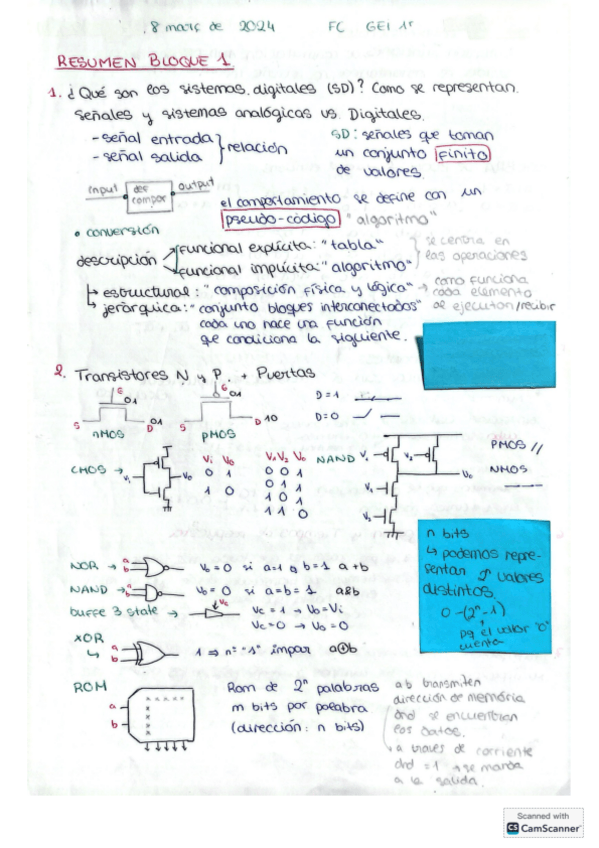 8 març de 2024 FC GEI 1r
RESUMEN BLOQUE 1
1. ¿Qué son los sistemas digitales (SD)? Como se representan.
Señales y sistemas analógicas vs. Digitales.
- señal entrada
- señal salida
relación
SD: señales que toman
un conjunto finito
de valores
input def compor output
el comportamiento se define con un
pseudo-código "algoritmo"
• conversión
descripción
funcional explícita: "tabla"
funcional implícita: "algoritmo"
se centra en
las operaciones
↳ estructural: "composición física y lógica" → como funciona
cada elemento
↳ jerárquica: "conjunto bloques interconectados"
se ejecutan/recibir
cada uno hace una función
que condiciona la siguiente.
2. Transistores N y P. + Puertas
G 01
S 01 D
nMOS
G 01
S D 10
pMOS
D=1
D=0
CMOS → V1 V0
Vi V0
0 1
1 0
V1 V2 V0
0 0 1
0 1 1
1 0 1
1 1 0
NAND V1 V2 V0
V1
V2
PMOS //
NMOS
n bits
↳ podemos repre-
sentan 2ⁿ valores
distintos.
0-(2ⁿ-1)
pq el valor "0"
cuenta
NOR → a b V0 = 0 si a=1 o b=1 a+b
NAND → a b V0 = 0 si a=b=1 a&b
buffe 3 state → Vc Vc = 1 → V0=Vi
Vc=0 → V0=0
XOR
↳ a b 1 ⇒ nº "1" impar a⊕b
ROM
a
b
Rom de 2ⁿ palabras
m bits por palabra
(dirección: n bits)
a b transmiten
dirección de memória
dnd se encuentran
los datos.
• a través de corriente
dnd = 1 → se manda
a la salida.
Scanned with
CS CamScanner